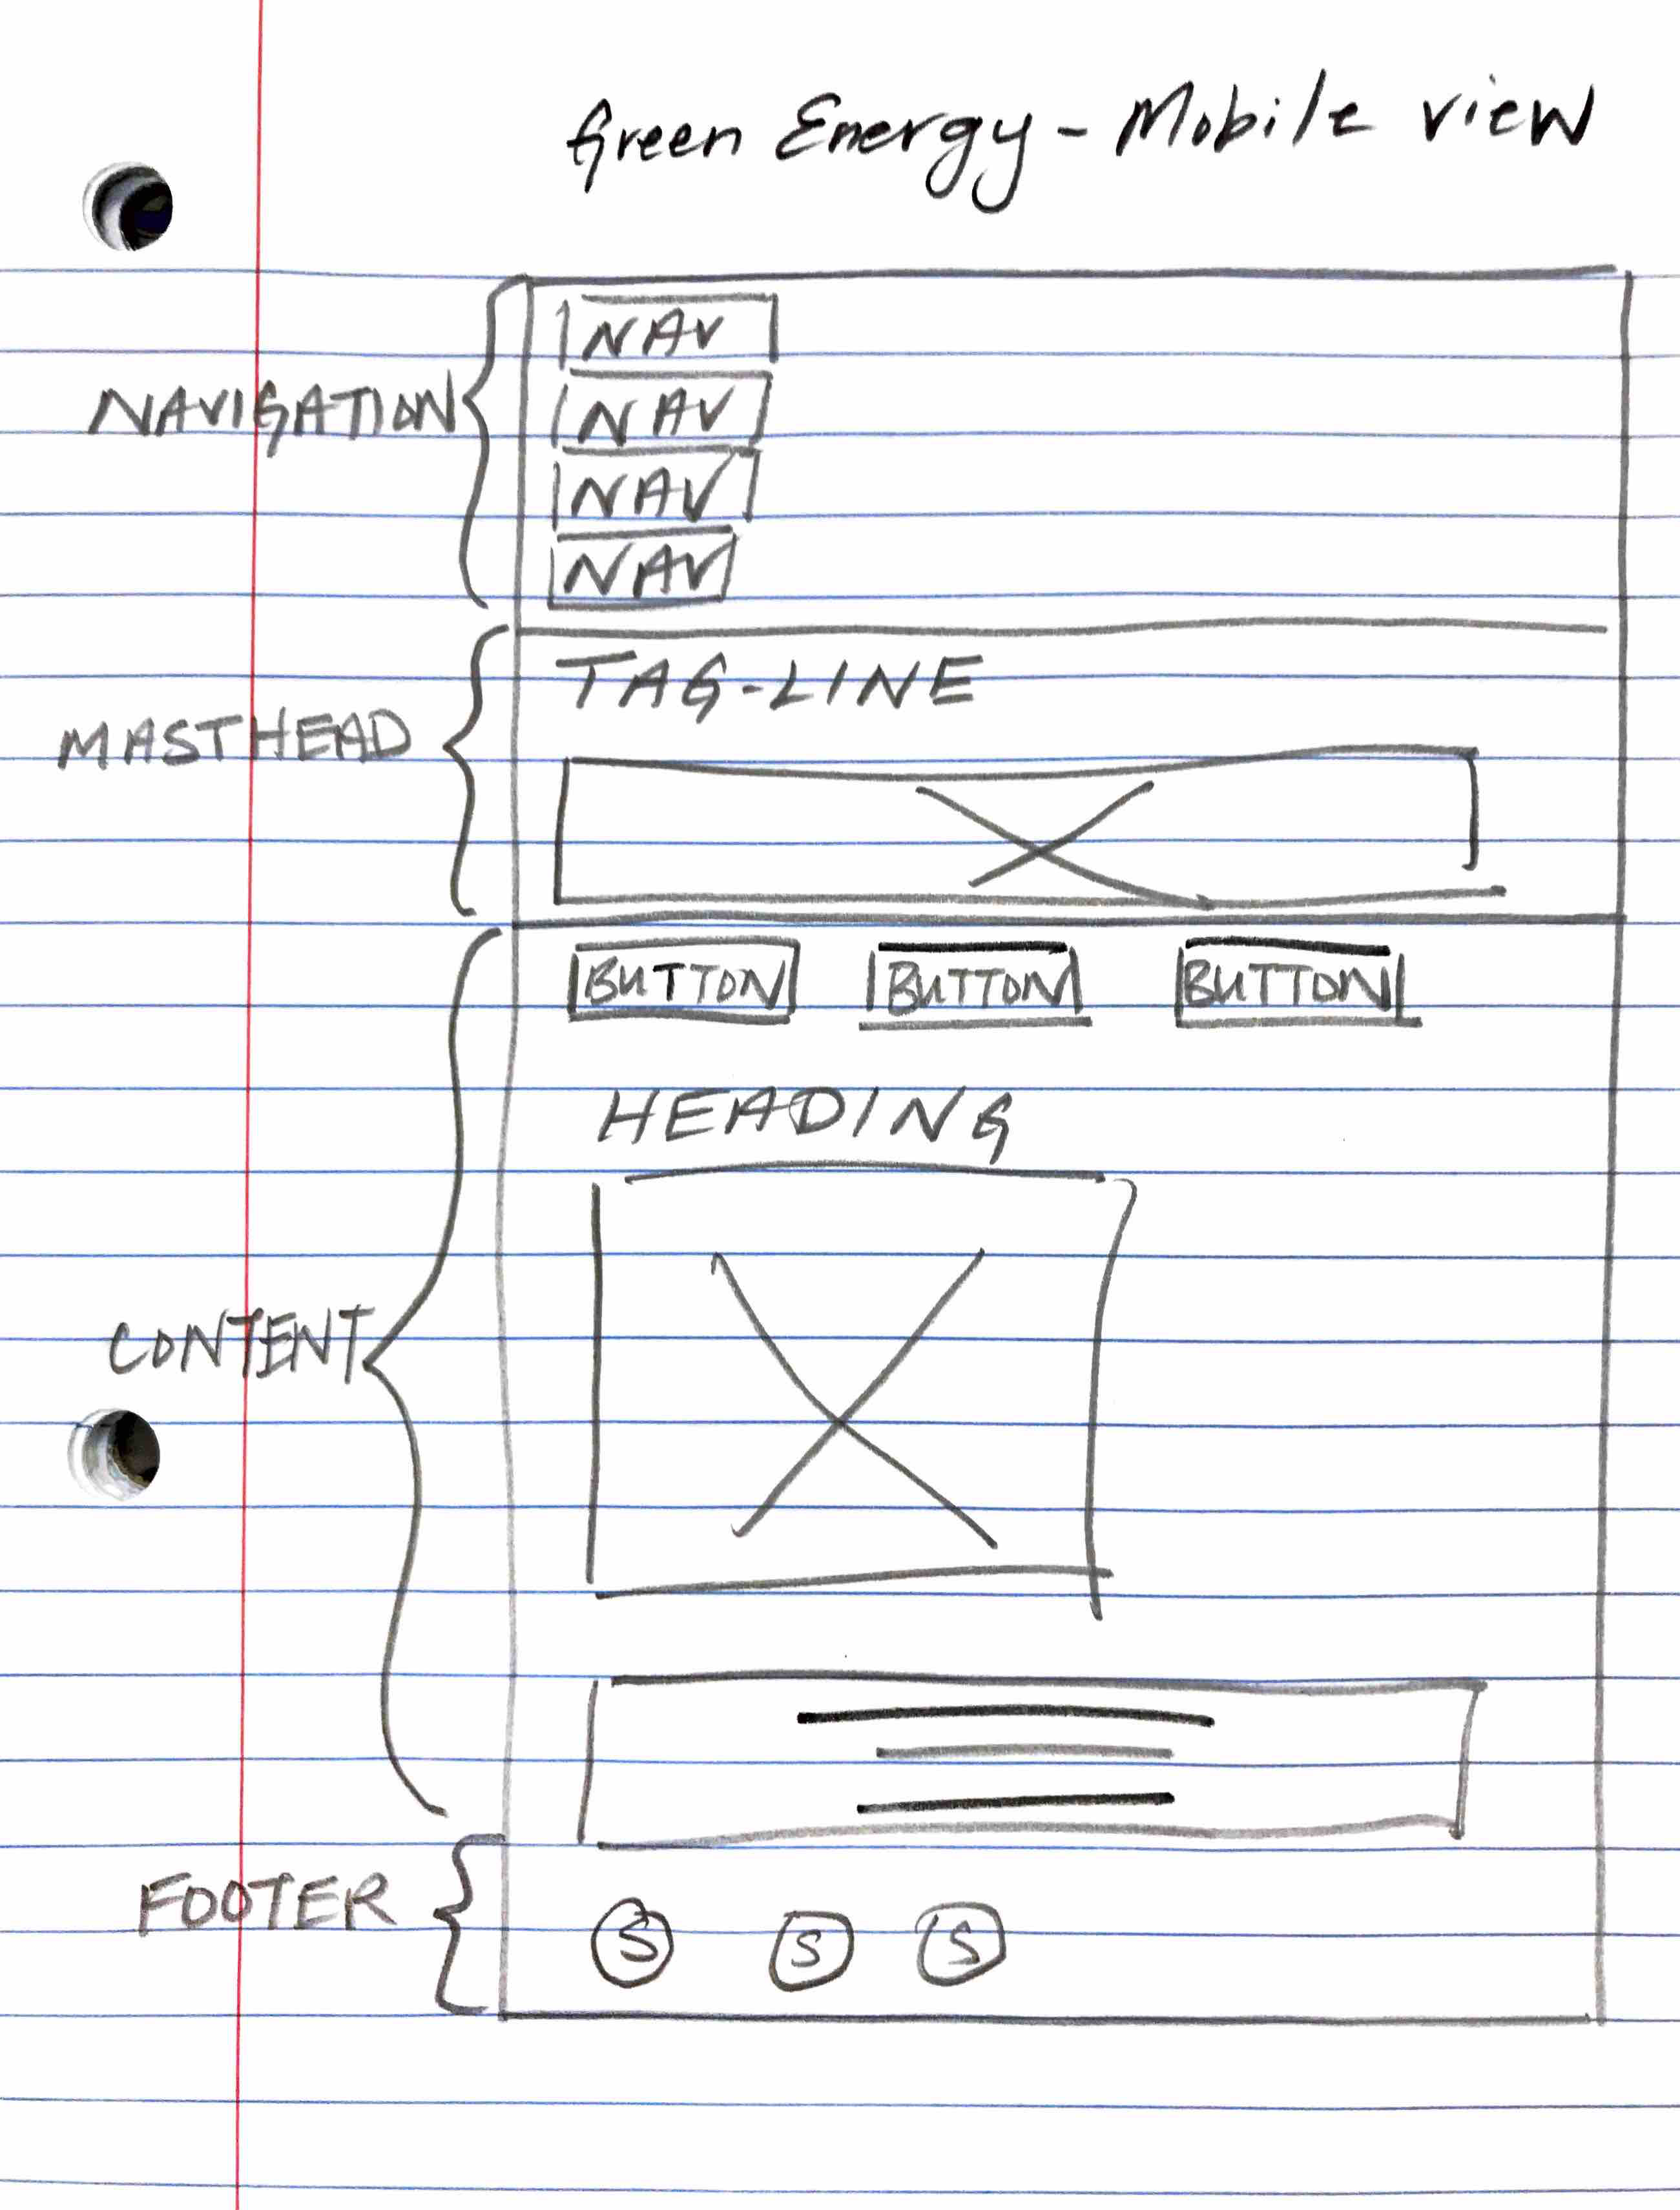 Green Energy - Mobile view
NAVIGATION
NAV
NAV
NAV
NAV
MASTHEAD
TAG-LINE
CONTENT
BUTTON BUTTON BUTTON
HEADING
FOOTER
S S S